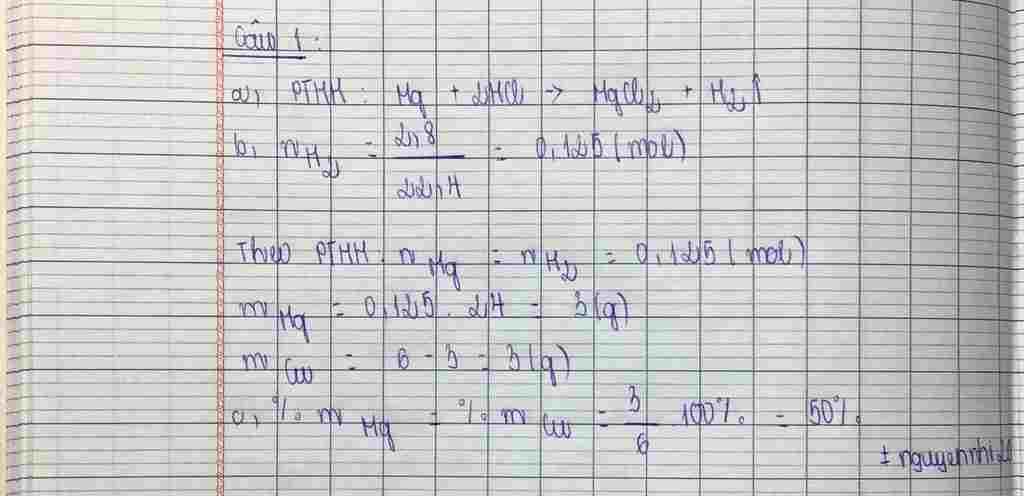 Câu 1:
a, PTHH: Mg + 2HCl → MgCl₂ + H₂↑
b, nH₂ = 2,8/22,4 = 0,125 (mol)
Theo PTHH: nMg = nH₂ = 0,125 (mol)
mMg = 0,125 . 24 = 3 (g)
mCu = 6 - 3 = 3 (g)
c, % mMg = % mCu = 3/6 100% = 50%